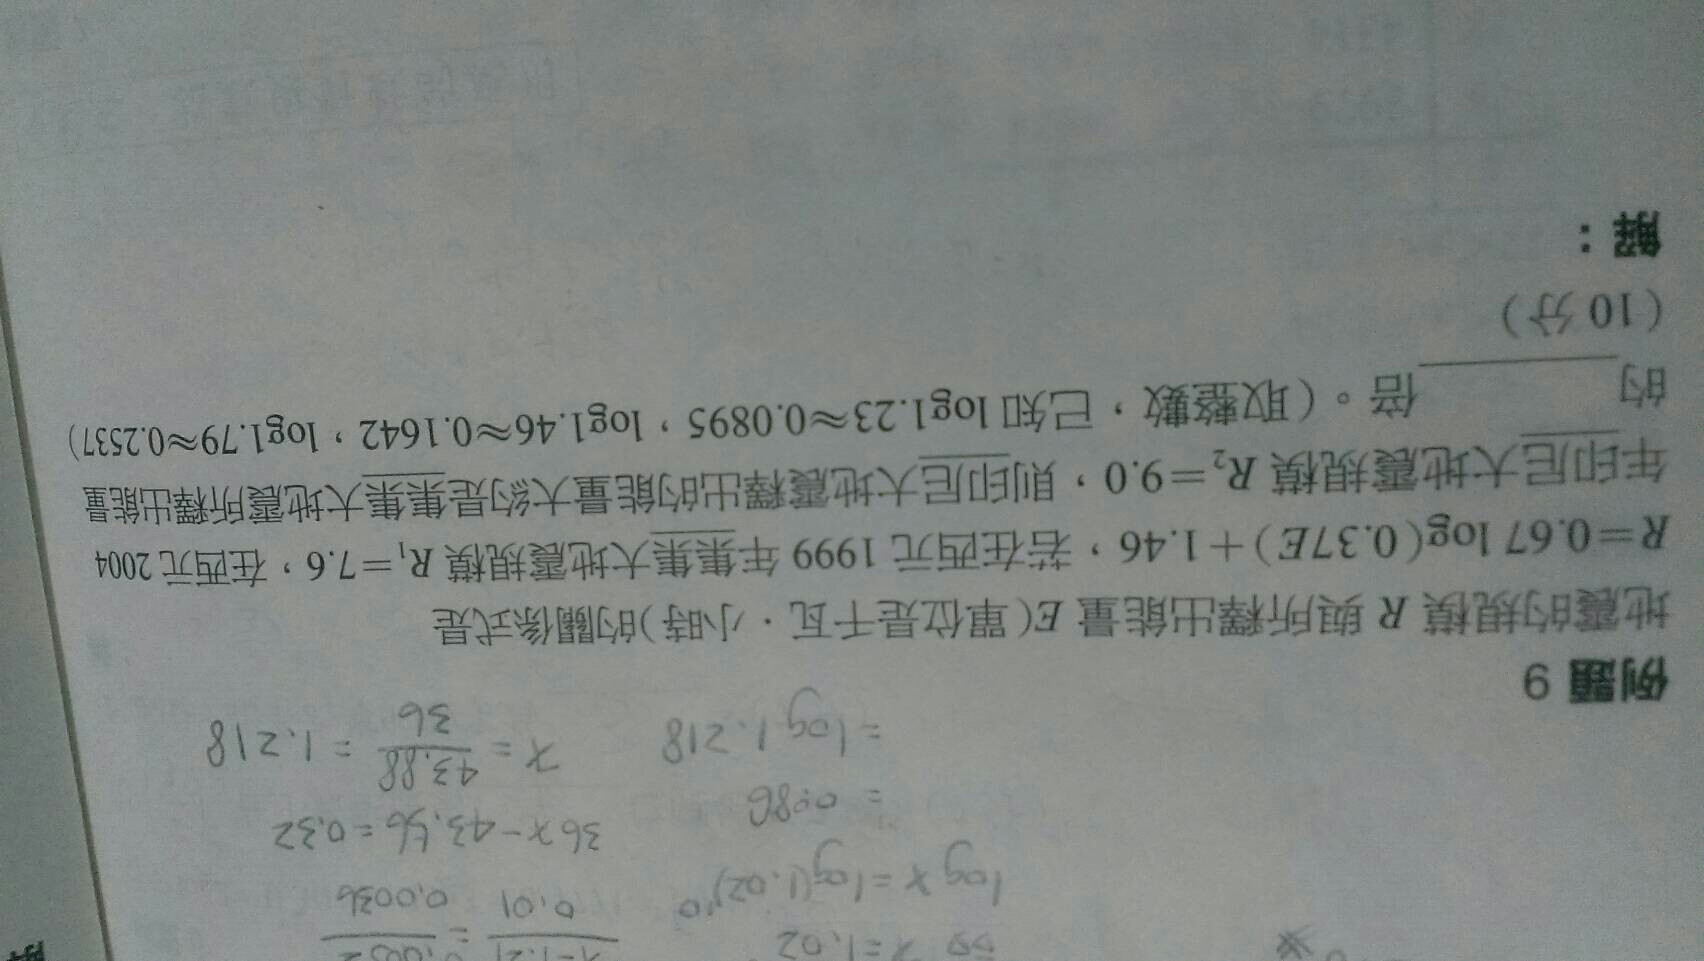 59 x=1.02
log x=log(1.02)¹⁰
= 0.086
=log 1.218
36x-43.56=0.32
x = 43.88/36 = 1.218
例題 9
地震的規模 R 與所釋出能量 E(單位是千瓦．小時)的關係式是
R=0.67 log(0.37E)+1.46，若在西元 1999 年集集大地震規模 R₁=7.6，在西元 2004
年印尼大地震規模 R₂=9.0，則印尼大地震釋出的能量大約是集集大地震所釋出能量
的______倍。(取整數，已知 log1.23≈0.0895，log1.46≈0.1642，log1.79≈0.2537)
(10 分)
解：